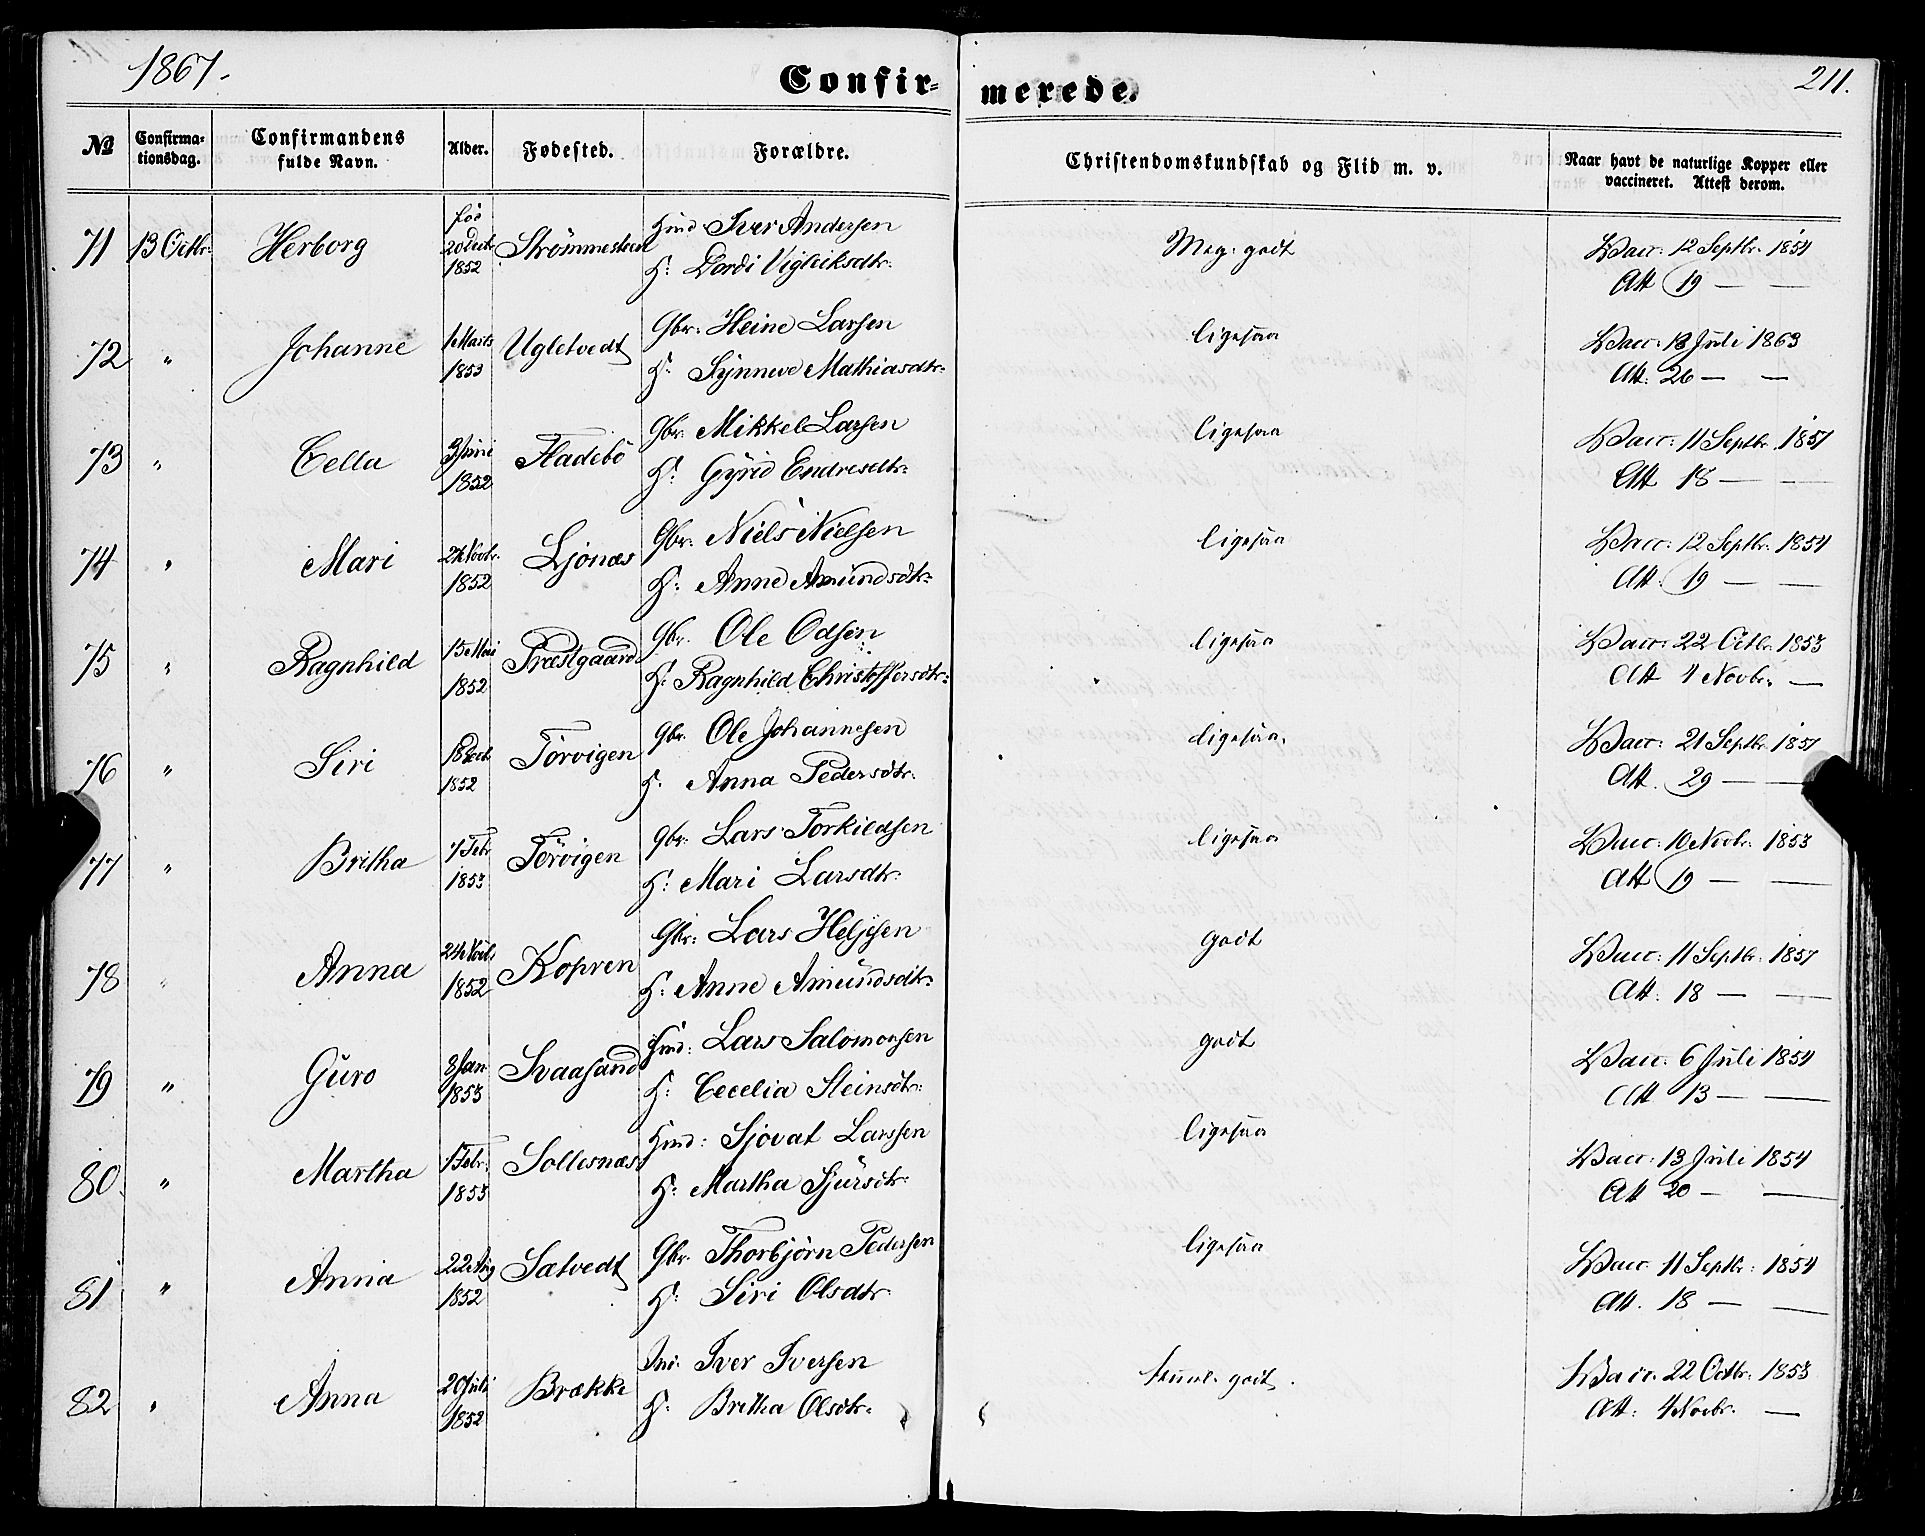 1867.
Confir-
merede.
211.
№
Confirma-
tionsdag.
Confirmandens
fulde Navn.
Alder.
Fødested.
Forældre.
Christendomskundskab og Flid m. v.
Naar havt de naturlige Kopper eller
vaccineret. Attest derom.
71 13 Octbr. Herborg fød 20 Decbr 1852 Strømmesteen Huusmd Iver Andersen
H: Dordi Vigleiksdtr. Meg: godt Vacc: 12 Septbr. 1854
Att 19 — —
72 " Johanne 1 Marts 1853 Ugletvedt Gbr. Heine Larsen
H: Synneve Mathiasdtr. ligesaa Vacc: 18 Juli 1863
Att. 26 — —
73 " Cella 3 Juni 1852 Fladebö Gbr. Mikkel Larsen
H: Gyrid Endresdtr. ligesaa Vacc: 11 Septbr. 1857
Att 18 — —
74 " Mari 24 Novbr. 1852 Ljonæs Gbr. Niels Nielsen
H: Anne Amundsdtr. ligesaa Vacc: 12 Septbr. 1854
Att. 19 — —
75 " Ragnhild 15 Mai 1852 Præstgaard Gbr. Ole Odsen
H: Ragnhild Christoffersdtr. ligesaa Vacc: 22 Octbr. 1853
Att 4 Novbr. —
76 " Siri 18 Decb. 1852 Torvigen Gbr. Ole Johannesen
H. Anna Pedersdtr. ligesaa. Vacc: 21 Septbr. 1857
Att. 29 — —
77 " Britha 7 Febr 1853 Torvigen Gbr. Lars Torkildsen
H: Mari Larsdtr. ligesaa Vacc: 10 Novbr. 1853
Att 19 — —
78 " Anna 24 1852 Kopren Gbr: Lars Heljesen
H: Anne Amundsdtr. godt Vacc: 11 Septbr. 1857
Att: 18 — —
79 " Guro 8 Jan 1853 Svaasand Hmd: Lars Salomonsen
H: Cecelia Steinsdtr. godt Vacc: 6 Juli 1854
Att 13 — —
80. " Martha 1 Febr. 1853 Sollesnæs Hmd: Sjovat Larsen
H: Martha Sjursdtr. ligesaa Vacc: 13 Juli 1854
Att 20 — —
81 " Anna 22 Aug 1852 Sætvedt Gbr. Thorbjörn Pedersen
H: Siri Olsdtr ligesaa Vacc: 11 Septbr: 1854
Att. 18 — —
82 " Anna 20 Juli 1852 Brække Iver Iversen
H. Britha Olsdtr. temml. godt. Vacc. 22 Octbr. 1853
Att: 4 Novbr. —